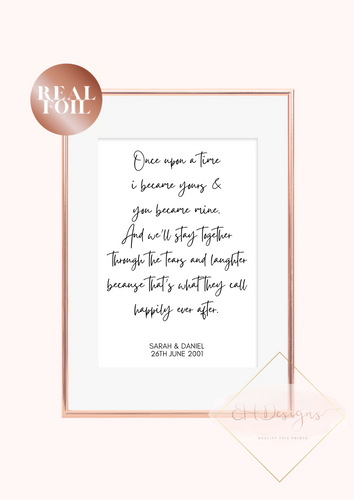 REAL
FOIL
Once upon a time
i became yours &
you became mine.
And we'll stay together
through the tears and laughter
because that's what they call
happily ever after.
SARAH & DANIEL
26TH JUNE 2001
EH Designs
QUALITY FOIL PRINTS